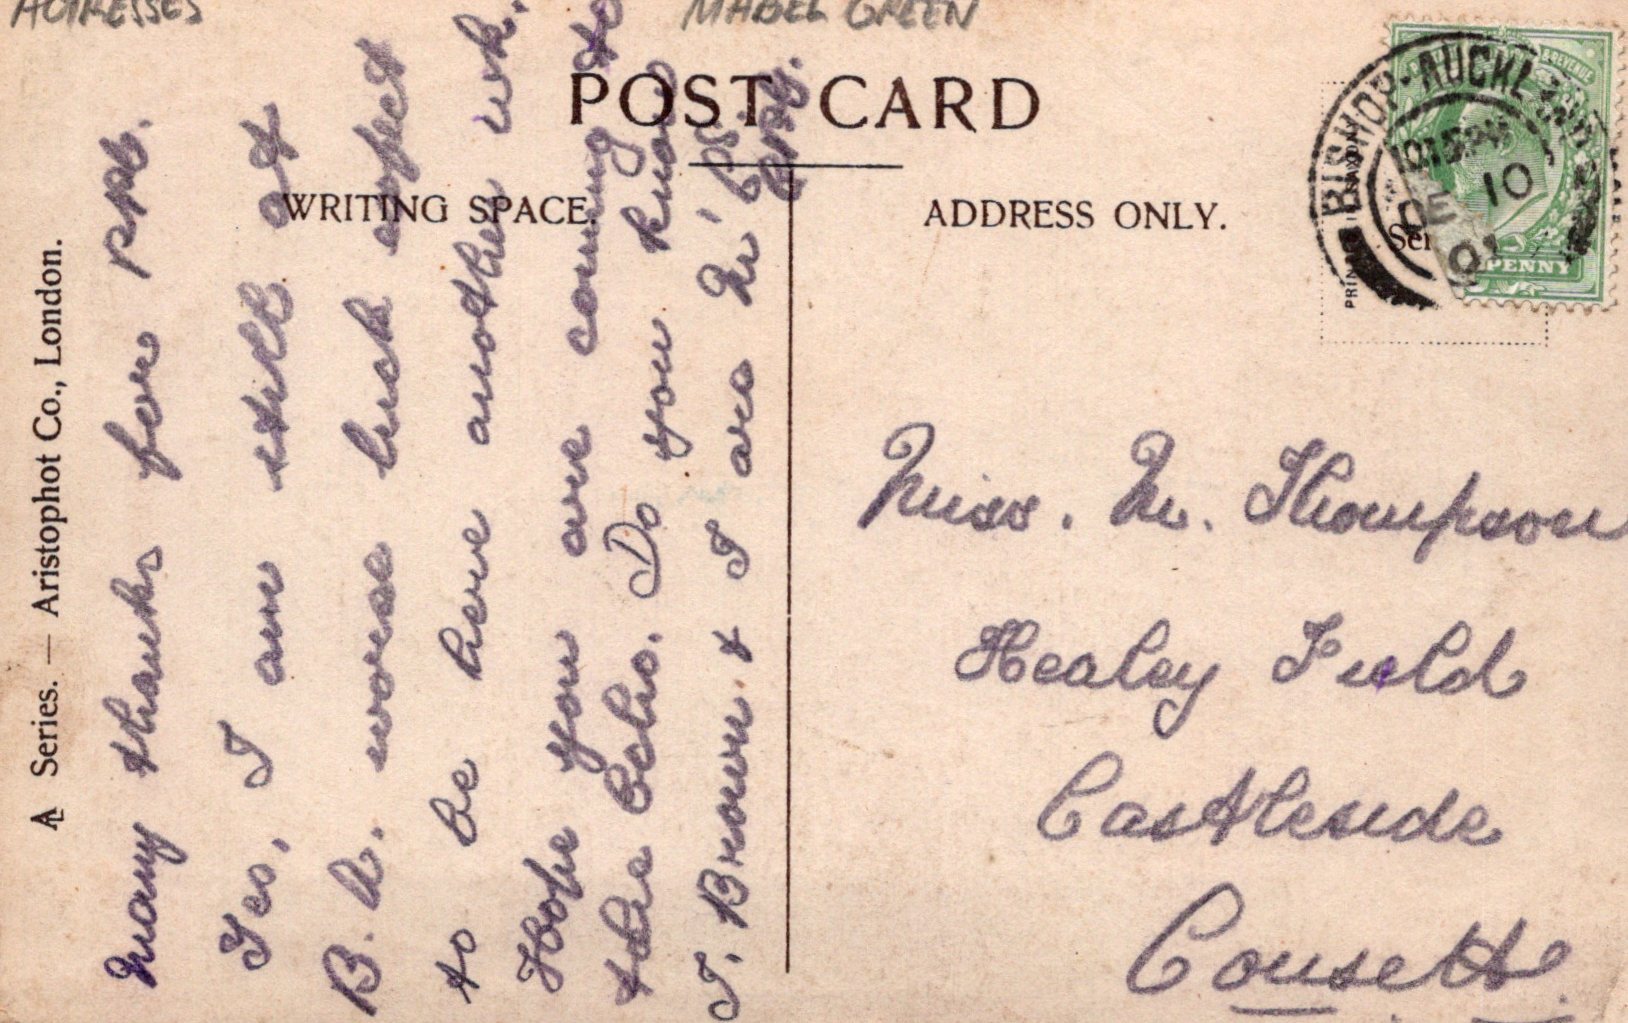 ACTRESSES
MABEL GREEN
POST CARD
WRITING SPACE.
ADDRESS ONLY.
A Series. — Aristophot Co., London.
Many thanks for ppc.
Yes, I am still at
B. A. worse luck expect
to be here another wk.
Hope you are coming to
the Echo. Do you know
J. Brown & I are M'
BISHOP-AUCKLAND
DE 10
PENNY
& REVENUE
Miss. M. Thompson
Healey Field
Castleside
Consett.